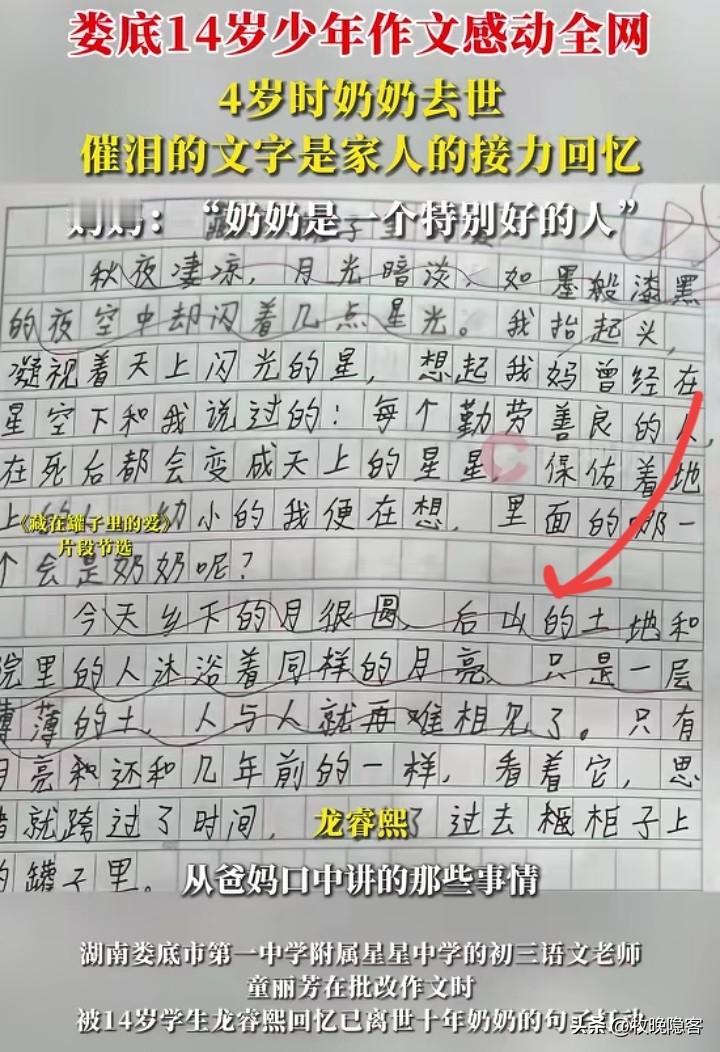 娄底14岁少年作文感动全网
4岁时奶奶去世
催泪的文字是家人的接力回忆
：“奶奶是一个特别好的人”
秋夜凄凉，月光暗淡，如墨般漆黑
的夜空中却闪着几点星光。我抬起头，
凝视着天上闪光的星，想起我妈曾经在
星空下和我说过的：每个勤劳善良的人，
在死后都会变成天上的星星，保佑着地
上的人 小的我便在想，里面的哪一
《藏在罐子里的爱》
片段节选
个会是奶奶呢？
今天乡下的月很圆，后山的土地和
院里的人沐浴着同样的月亮，只是一层
薄薄的土，人与人就再难相见了。只有
月亮和还和几年前的一样，看着它，思
绪就跨过了时间， 了过去柜柜子上
龙睿熙
的罐子里。
从爸妈口中讲的那些事情
湖南娄底市第一中学附属星星中学的初三语文老师
童丽芳在批改作文时
被14岁学生龙睿熙回忆已离世十年奶奶的句子打动
头条@牧晚隐客